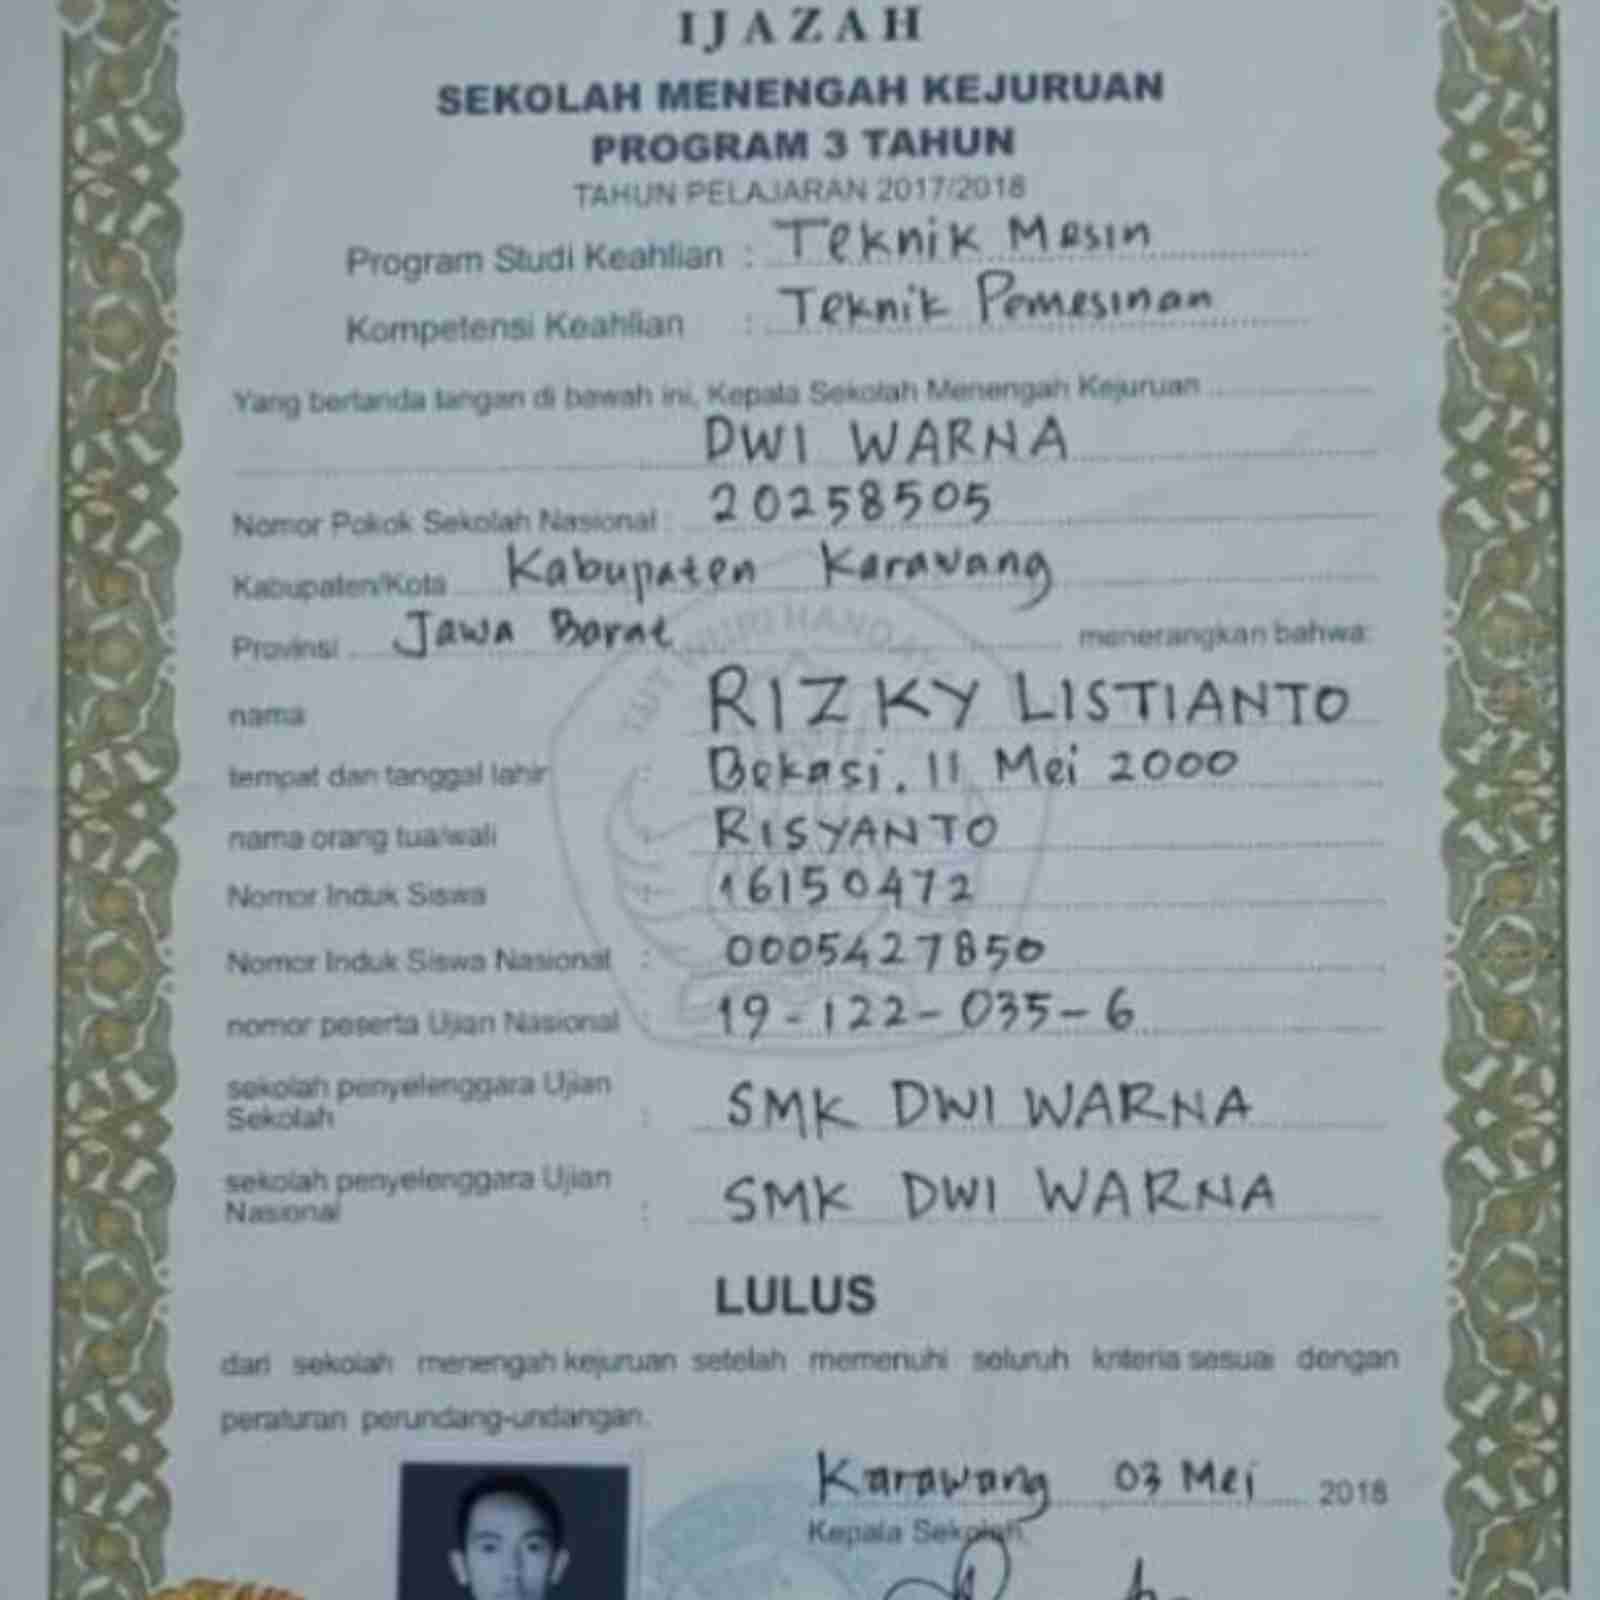 IJAZAH
SEKOLAH MENENGAH KEJURUAN
PROGRAM 3 TAHUN
TAHUN PELAJARAN 2017/2018
Program Studi Keahlian : Teknik Mesin
Kompetensi Keahlian : Teknik Pemesinan
Yang bertanda tangan di bawah ini, Kepala Sekolah Menengah Kejuruan
DWI WARNA
Nomor Pokok Sekolah Nasional : 20258505
Kabupaten/Kota Kabupaten Karawang
Provinsi Jawa Barat menerangkan bahwa:
TUT WURI HANDAYANI
nama RIZKY LISTIANTO
tempat dan tanggal lahir : Bekasi, 11 Mei 2000
nama orang tua/wali : RISYANTO
Nomor Induk Siswa : 16150472
Nomor Induk Siswa Nasional : 0005427850
nomor peserta Ujian Nasional : 19-122-035-6
sekolah penyelenggara Ujian
Sekolah : SMK DWI WARNA
sekolah penyelenggara Ujian
Nasional : SMK DWI WARNA
LULUS
dari sekolah menengah kejuruan setelah memenuhi seluruh kriteria sesuai dengan
peraturan perundang-undangan.
Karawang 03 Mei 2018
Kepala Sekolah,